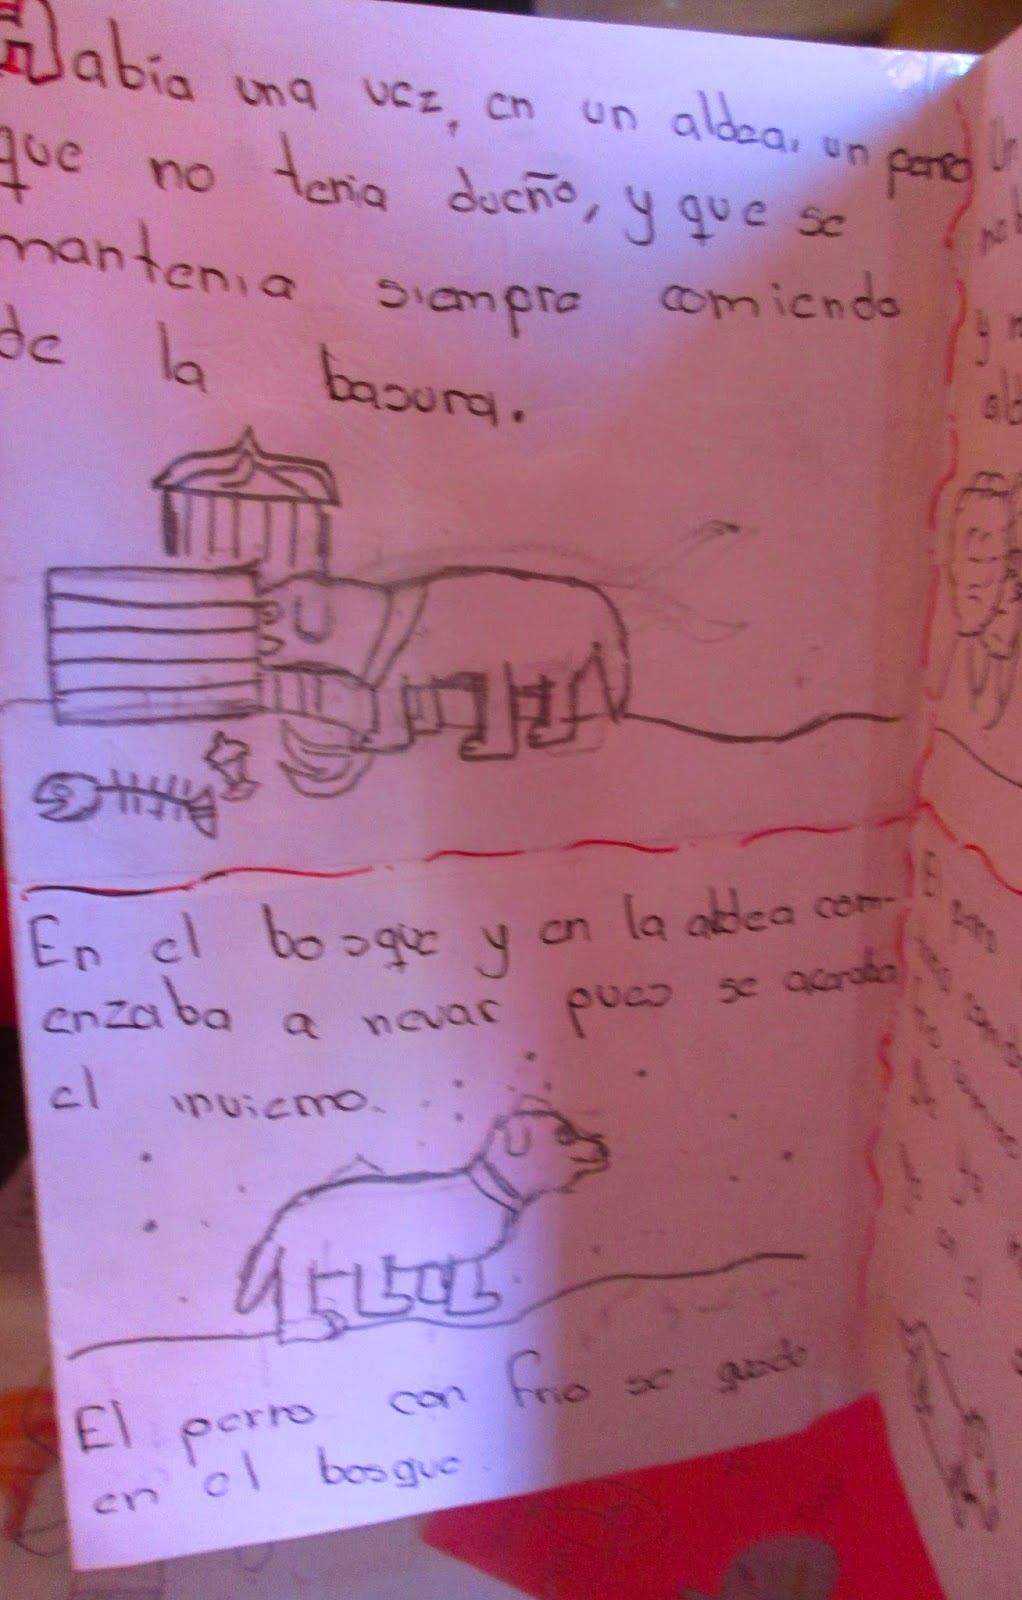 Había una vez, en un aldea, un perro
que no tenia dueño, y que se
mantenia siempre comiendo
de la basura.
En el bosque y en la aldea com-
enzaba a nevar pues se acercaba
el invierno.
El perro con frio se quedo
en el bosque.
Un
y
El
perro